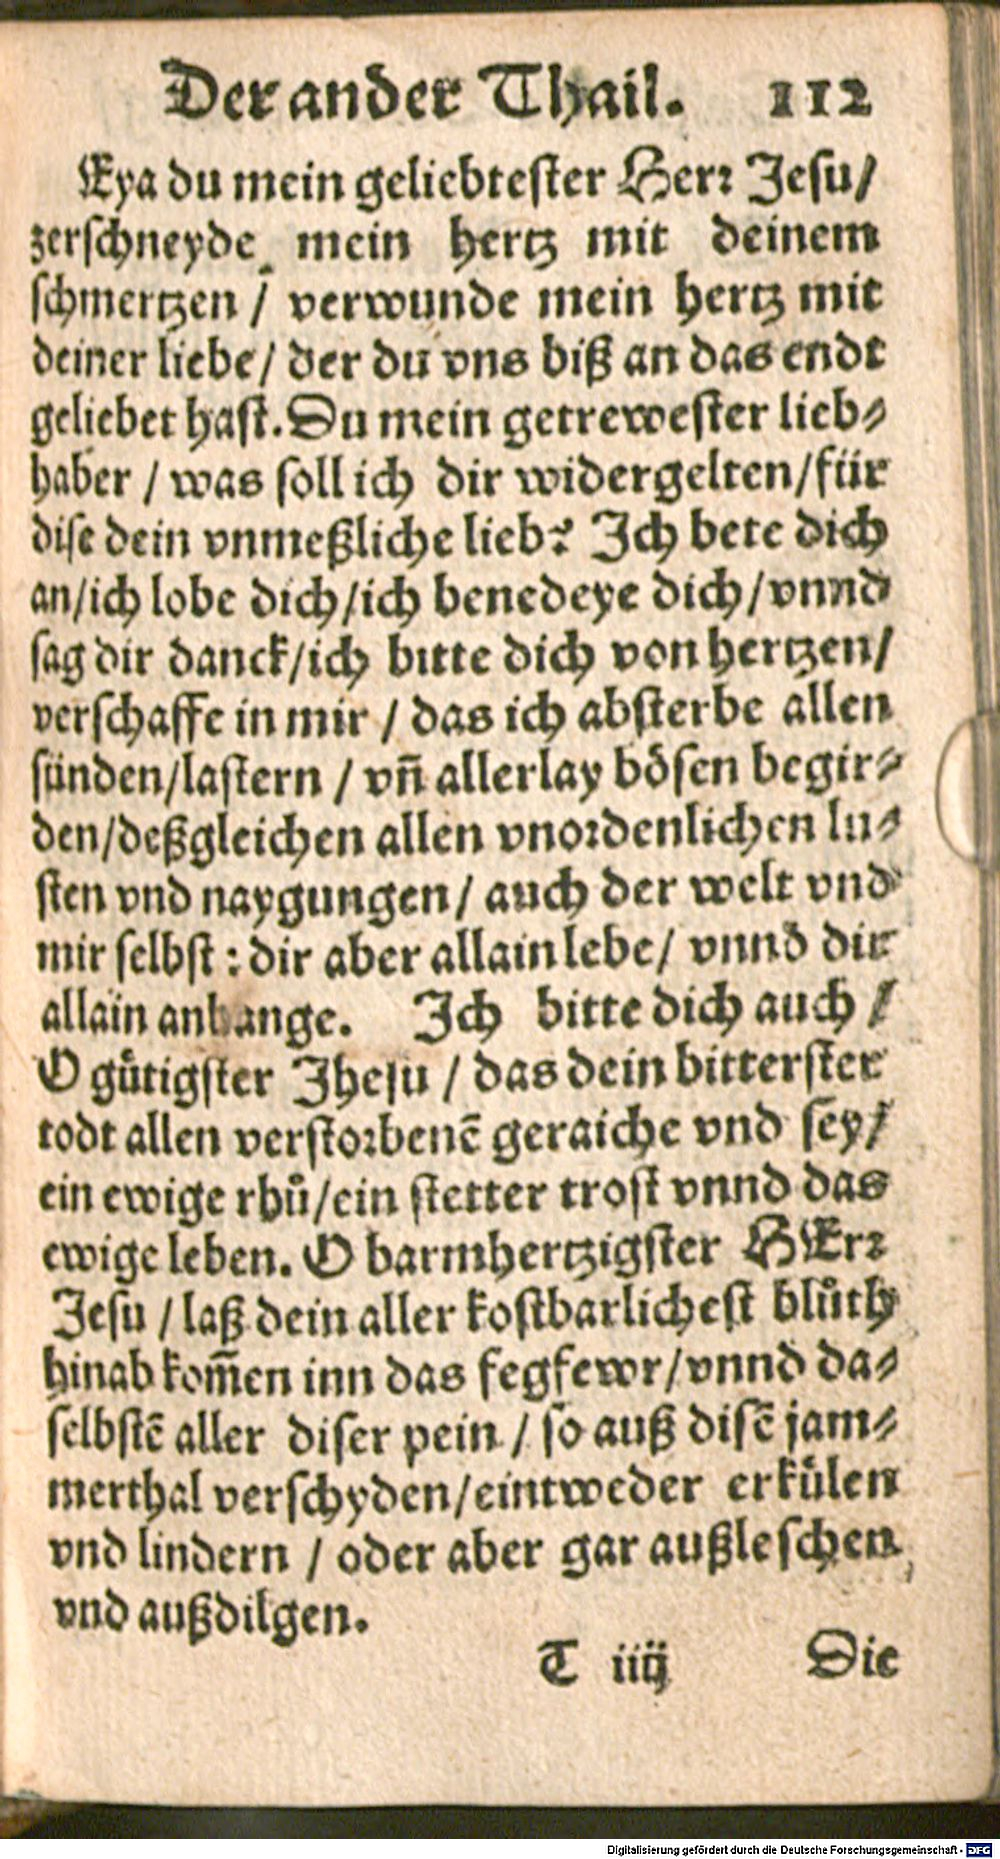 Der ander Thail. 112
Eya du mein geliebtester Herr Jesu/
zerschneyde mein hertz mit deinem
schmertzen / verwunde mein hertz mit
deiner liebe/ der du vns biß an das endt
geliebet hast. Du mein getrewester lieb⸗
haber / was soll ich dir widergelten/für
dise dein vnmeßliche lieb? Ich bete dich
an/ich lobe dich/ich benedeye dich/vnnd
sag dir danck/ich bitte dich von hertzen/
verschaffe in mir / das ich absterbe allen
sünden/lastern / vñ allerlay bösen begir⸗
den/deßgleichen allen vnordenlichen lu⸗
sten vnd naygungen/ auch der welt vnd
mir selbst : dir aber allain lebe/ vnnd dir
allain anhange. Ich bitte dich auch /
O gůtigster Jhesu / das dein bitterster
todt allen verstorbenẽ geraiche vnd sey/
ein ewige rhů/ein stetter trost vnnd das
ewige leben. O barmhertzigster HErr
Jesu / laß dein aller kostbarlichest blůth
hinab kom̃en inn das fegfewr/vnnd da⸗
selbstẽ aller diser pein / so auß disẽ jam⸗
merthal verschyden/eintweder erkůlen
vnd lindern / oder aber gar außleschen
vnd außdilgen.
T iiij Die
Digitalisierung gefördert durch die Deutsche Forschungsgemeinschaft - DFG